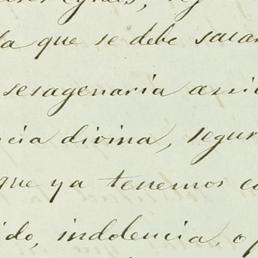 la que se debe sacar
sesagenaria
cia divina, segur
que ya tenemos
ido, indolencia, o